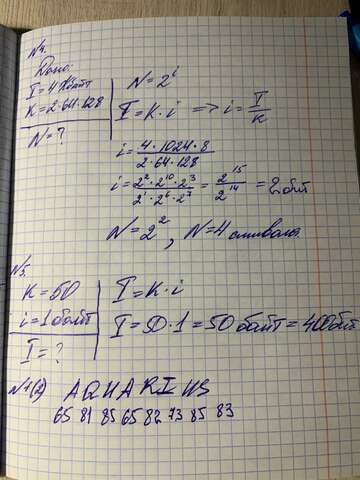 №4.
Дано:
I = 4 Кбайт
K = 2·64·128
N = ?
N = 2^i
I = K·i => i = I/K
i = (4·1024·8)/(2·64·128)
i = (2^2·2^10·2^3)/(2^1·2^6·2^7) = 2^15/2^14 = 2 бит
N = 2^2, N = 4 символа.
№5.
K = 50
i = 1 байт
I = ?
I = K·i
I = 50·1 = 50 байт = 400 бит
№1(2) AQUARIUS
65 81 85 65 82 73 85 83